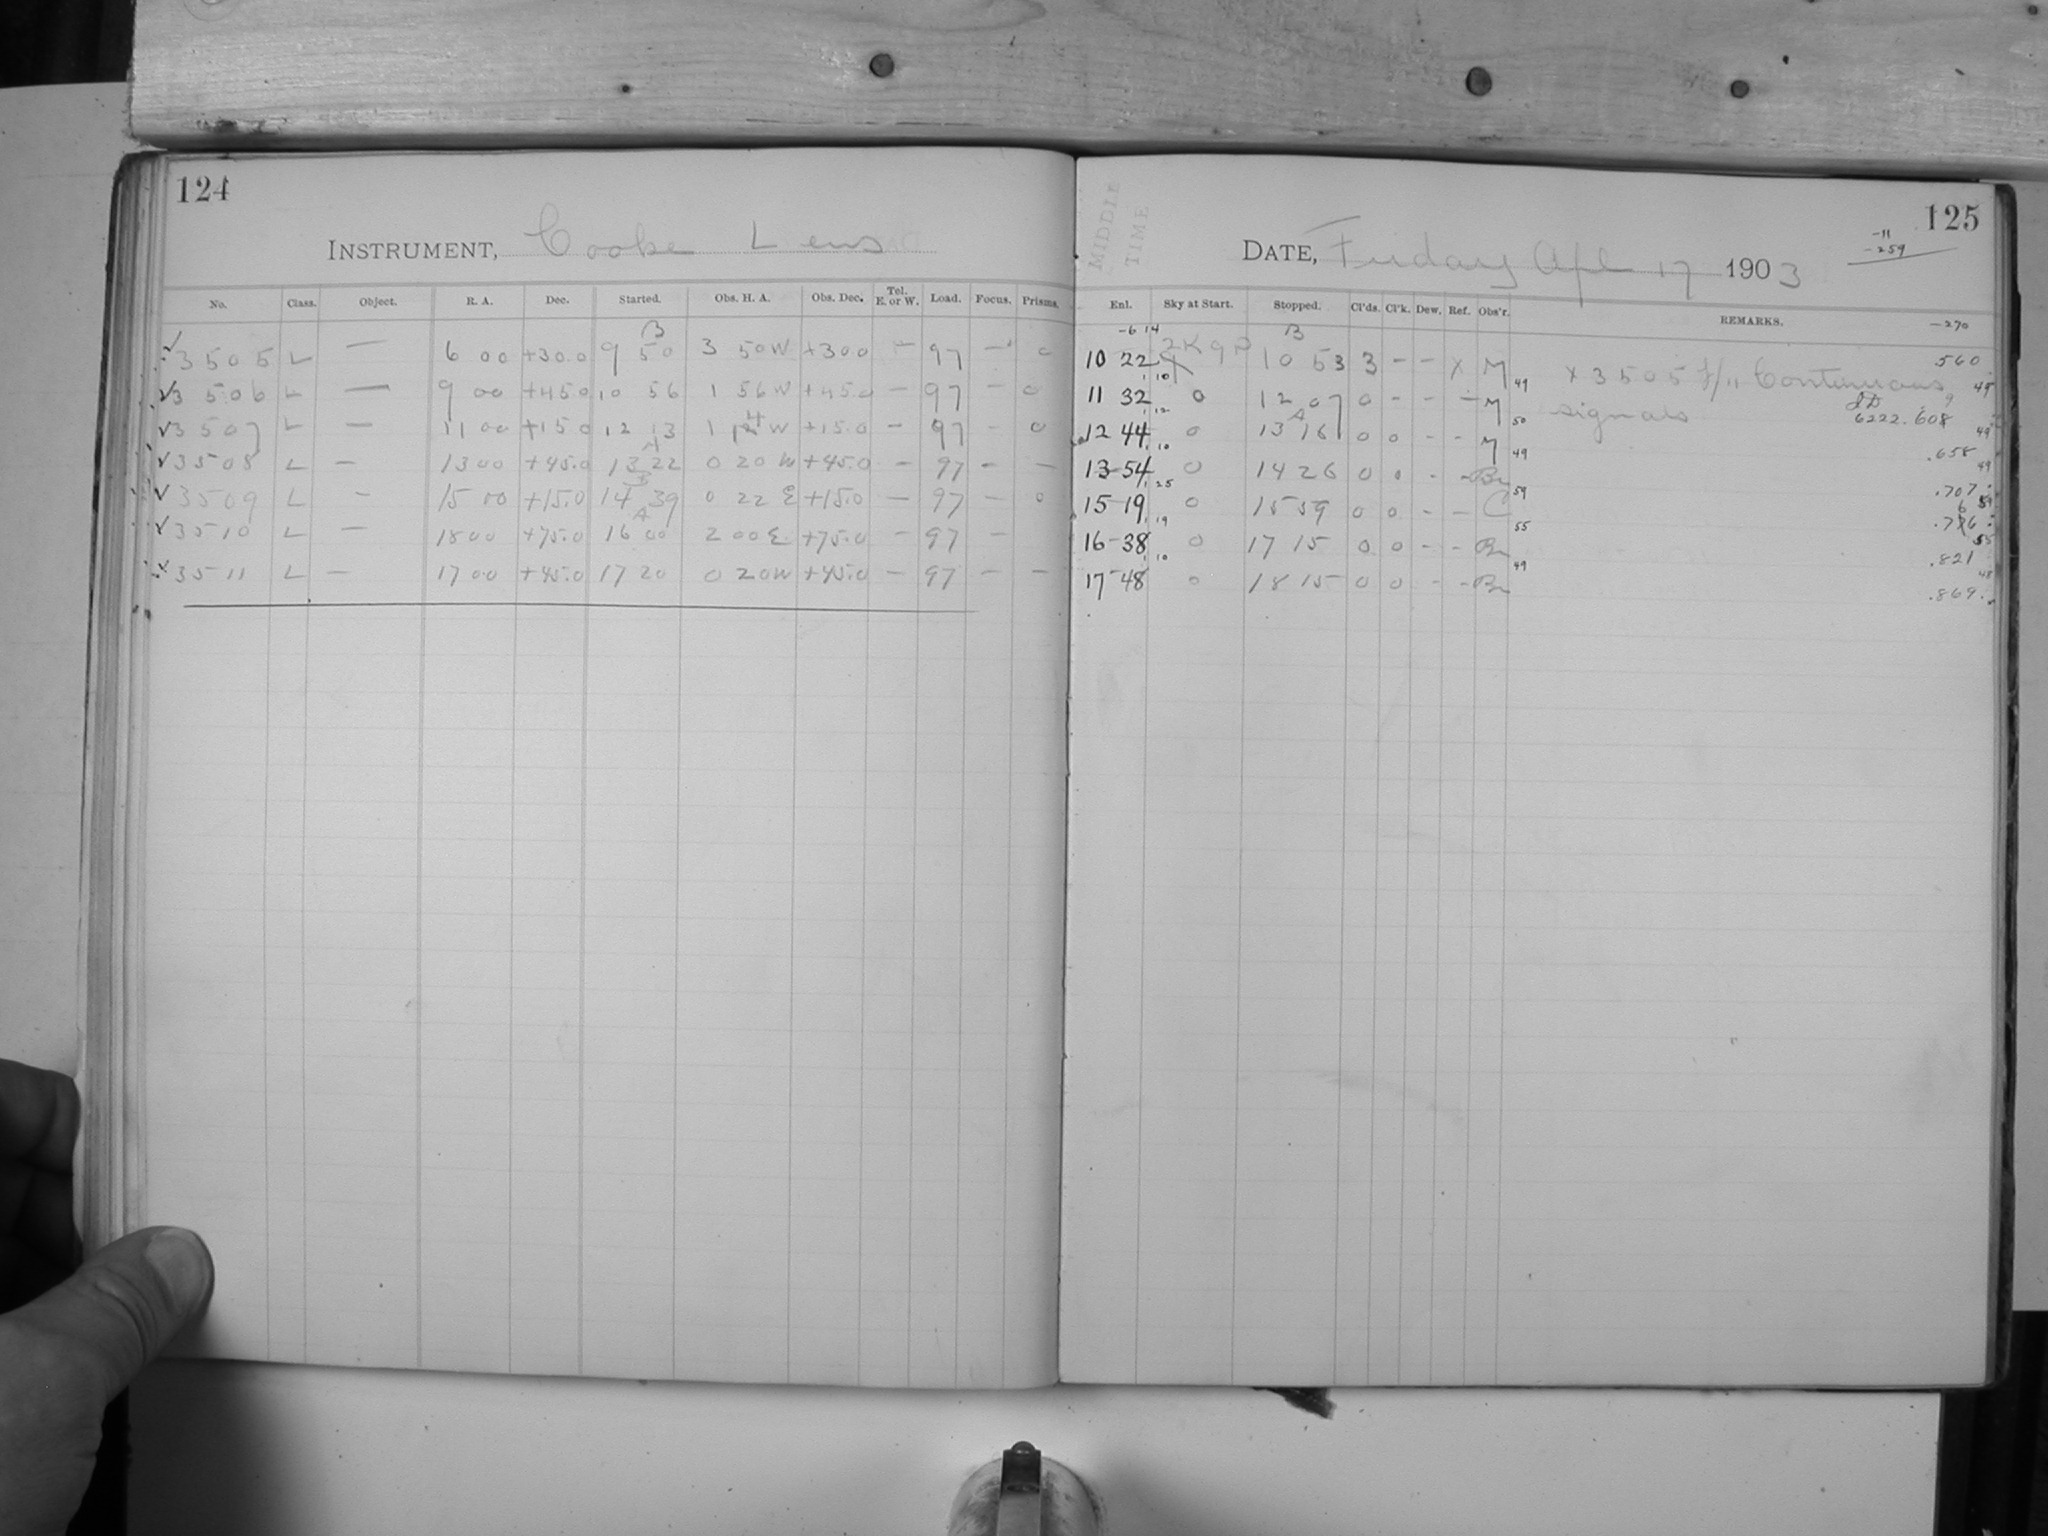 124
INSTRUMENT, Cooke Lens
No. Class. Object. R. A. Dec. Started. Obs. H. A. Obs. Dec. Tel. E. or W. Load. Focus. Prisms.
B
✓ 3505 L — 6 00 +30.0 9 50 3 50 W +30.0 — 97 — 0
✓ 3506 L — 9 00 +45.0 10 56 1 56 W +45.0 — 97 — 0
✓ 3507 L — 11 00 +15.0 12 13 1 14 W +15.0 — 97 — 0
✓ 3508 L — 13 00 +45.0 13 22 0 20 W +45.0 — 97 — —
✓ 3509 L — 15 00 +15.0 14 39 0 22 E +15.0 — 97 — 0
✓ 3510 L — 18 00 +75.0 16 00 2 00 E +75.0 — 97 —
✓ 3511 L — 17 00 +45.0 17 20 0 20 W +45.0 — 97 — —
125
MIDDLE
TIME
DATE, Friday Apl 17 1903
-11
-259
Enl. Sky at Start. Stopped. Cl'ds. Cl'k. Dew. Ref. Obs'r. REMARKS.
-270
-6 14 B
10 22 2K9P 10 53 3 — — x M x 3505 f/11 Continuous 560
signals
11 32 0 12 07 0 — — — M 6222.608
12 44 0 13 16 0 0 — — M .658
13-54 0 14 26 0 0 — — Bn .707
15-19 0 15 59 0 0 — — C .766
16-38 0 17 15 0 0 — — Bn .821
17-48 0 18 15 0 0 — — Bn .869